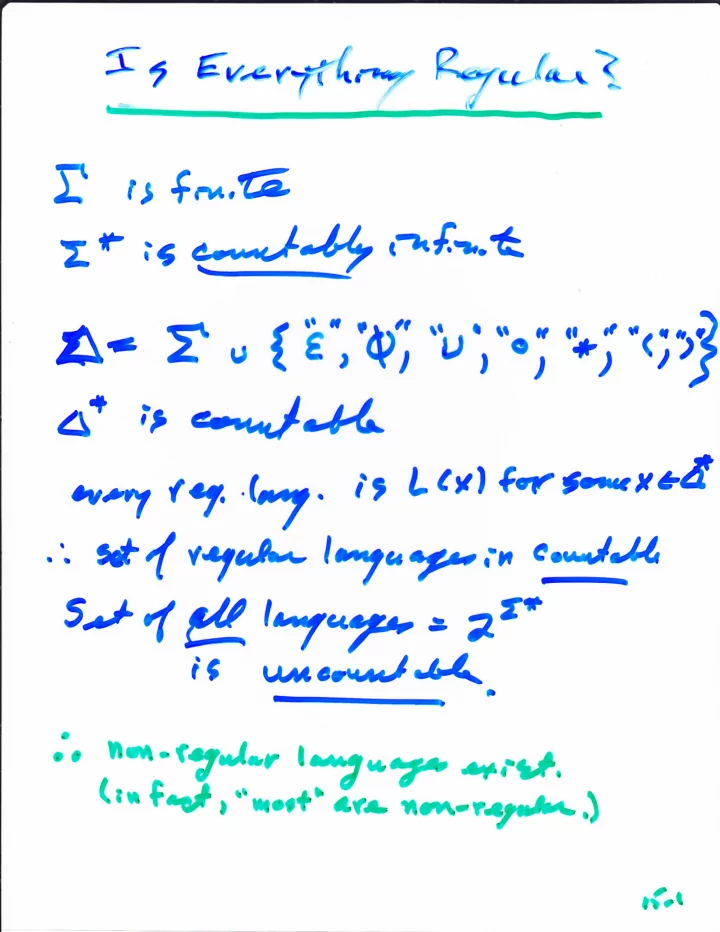 Is Everything Regular?
Σ is finite
Σ* is countably infinite
Δ = Σ ∪ { "ε", "φ", "∪", "∘", "*", "(", ")" }
Δ* is countable
every reg. lang. is L(x) for some x ∈ Δ*
∴ set of regular languages in countable
Set of all languages = 2^Σ*
is uncountable.
∴ non-regular languages exist.
(in fact, "most" are non-regular.)
15.1